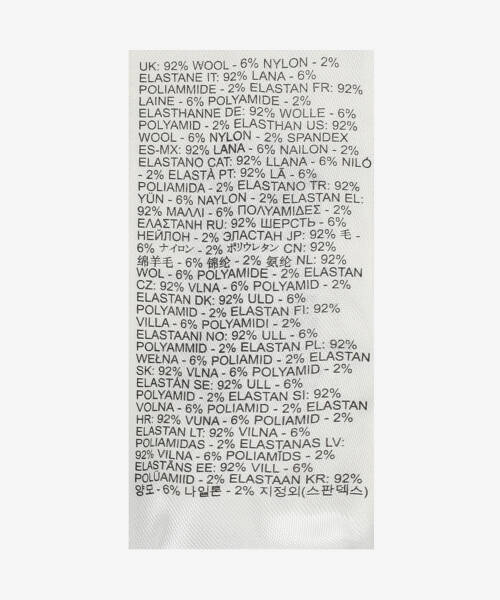 UK: 92% WOOL - 6% NYLON - 2%
ELASTANE IT: 92% LANA - 6%
POLIAMMIDE - 2% ELASTAN FR: 92%
LAINE - 6% POLYAMIDE - 2%
ELASTHANNE DE: 92% WOLLE - 6%
POLYAMID - 2% ELASTHAN US: 92%
WOOL - 6% NYLON - 2% SPANDEX
ES-MX: 92% LANA - 6% NAILON - 2%
ELASTANO CAT: 92% LLANA - 6% NILÓ
- 2% ELASTÀ PT: 92% LÃ - 6%
POLIAMIDA - 2% ELASTANO TR: 92%
YÜN - 6% NAYLON - 2% ELASTAN EL:
92% ΜΑΛΛΙ - 6% ΠΟΛΥΑΜΙΔΕΣ - 2%
ΕΛΑΣΤΑΝΗ RU: 92% ШЕРСТЬ - 6%
НЕЙЛОН - 2% ЭЛАСТАН JP: 92% 毛 -
6% ナイロン - 2% ポリウレタン CN: 92%
绵羊毛 - 6% 锦纶 - 2% 氨纶 NL: 92%
WOL - 6% POLYAMIDE - 2% ELASTAN
CZ: 92% VLNA - 6% POLYAMID - 2%
ELASTAN DK: 92% ULD - 6%
POLYAMID - 2% ELASTAN FI: 92%
VILLA - 6% POLYAMIDI - 2%
ELASTAANI NO: 92% ULL - 6%
POLYAMMID - 2% ELASTAN PL: 92%
WEŁNA - 6% POLIAMID - 2% ELASTAN
SK: 92% VLNA - 6% POLYAMID - 2%
ELASTAN SE: 92% ULL - 6%
POLYAMID - 2% ELASTAN SI: 92%
VOLNA - 6% POLIAMID - 2% ELASTAN
HR: 92% VUNA - 6% POLIAMID - 2%
ELASTAN LT: 92% VILNA - 6%
POLIAMIDAS - 2% ELASTANAS LV:
92% VILNA - 6% POLIAMĪDS - 2%
ELASTĀNS EE: 92% VILL - 6%
POLÜAMIID - 2% ELASTAAN KR: 92%
양모 - 6% 나일론 - 2% 지정외(스판덱스)